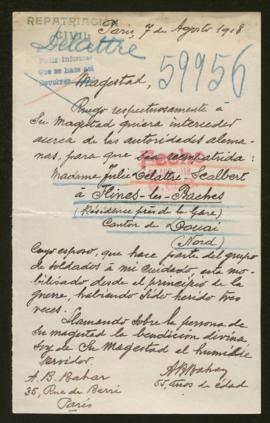 REPATRIACION
CIVIL
Paris, 7 de Agosto 1918
Delattre
Pedir informes
Que se hace así
59956
Magestad,
Ruego respectuosamente á
Su Magestad quiera interceder
acerca de las autoridades alema-
nas, para que sea reempatriada:
Madame Julie Delattre-Scalbert
à Flines-les-Raches
(Résidence près de la Gare)
Canton de Douai
(Nord)
Cuyo esposo, que hace parte del grupo
de soldados á mi cuidado, está mo-
bilizado desde el principio de la
guerra, habiendo sido herido tres
veces.
Llamando sobre la persona de
Su magestad la bendición divina,
soy de Su Magestad el humilde
servidor.
A. B. Bahar
35, Rue de Berri
Paris
A B Bahar
55 años de edad